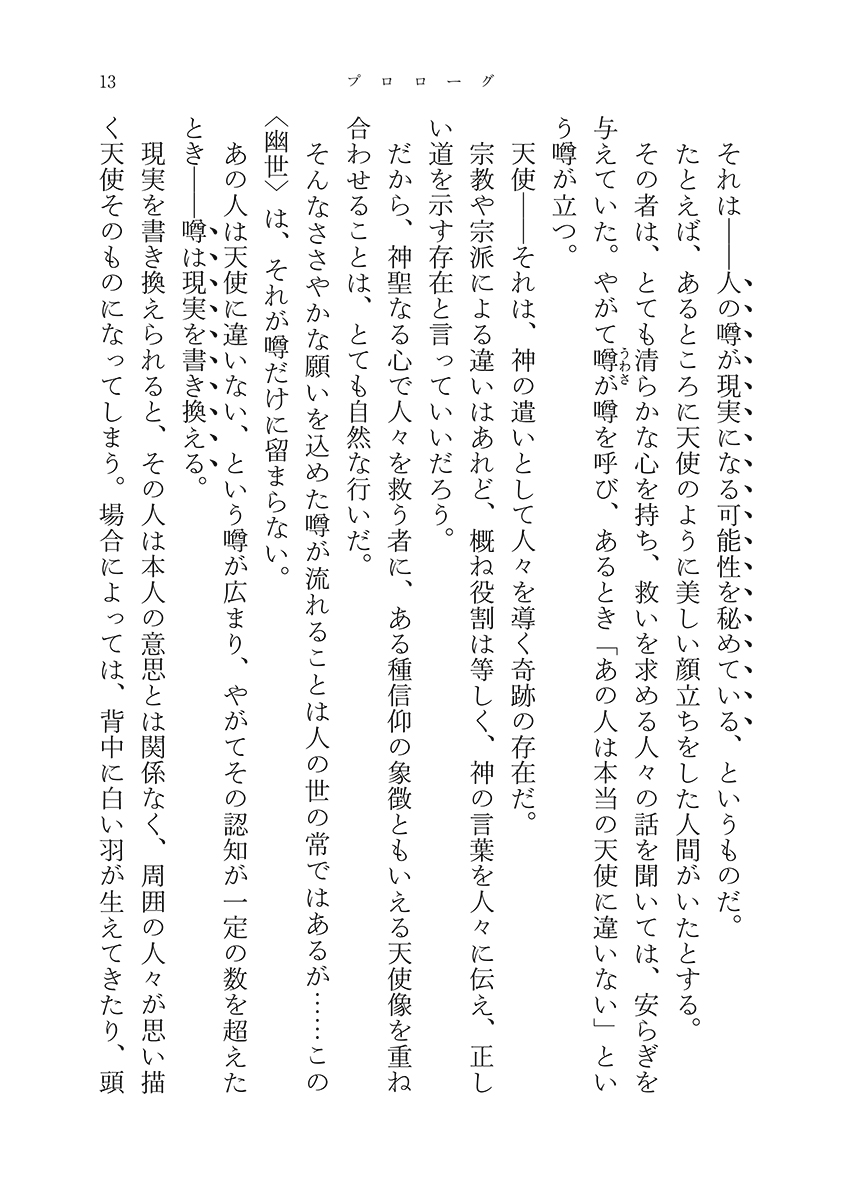 13
プロローグ
それは――人の噂が現実になる可能性を秘めている、というものだ。
たとえば、あるところに天使のように美しい顔立ちをした人間がいたとする。
その者は、とても清らかな心を持ち、救いを求める人々の話を聞いては、安らぎを
与えていた。やがて噂が噂を呼び、あるとき「あの人は本当の天使に違いない」とい
うわさ
う噂が立つ。
天使――それは、神の遣いとして人々を導く奇跡の存在だ。
宗教や宗派による違いはあれど、概ね役割は等しく、神の言葉を人々に伝え、正し
い道を示す存在と言っていいだろう。
だから、神聖なる心で人々を救う者に、ある種信仰の象徴ともいえる天使像を重ね
合わせることは、とても自然な行いだ。
そんなささやかな願いを込めた噂が流れることは人の世の常ではあるが……この
〈幽世〉は、それが噂だけに留まらない。
あの人は天使に違いない、という噂が広まり、やがてその認知が一定の数を超えた
とき――噂は現実を書き換える。
現実を書き換えられると、その人は本人の意思とは関係なく、周囲の人々が思い描
く天使そのものになってしまう。場合によっては、背中に白い羽が生えてきたり、頭